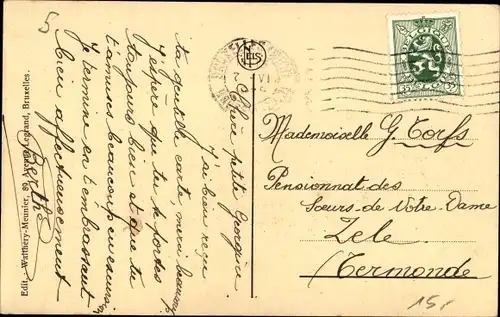 5
Chère petite Georgine.
J'ai bien reçu
ta gentille carte merci beaucoup
J'espère que tu te portes
toujours bien et que tu
t'amuses beaucoup
Je termine en t'embrassant
bien affectueusement
Berthe
Edit. Watthery-Meunier, 89, Avenue Legrand, Bruxelles.
BELGIQUE
35 35
Mademoiselle G. Torfs
Pensionnat des
Sœurs de Notre-Dame
Zele
(Termonde)
15,-